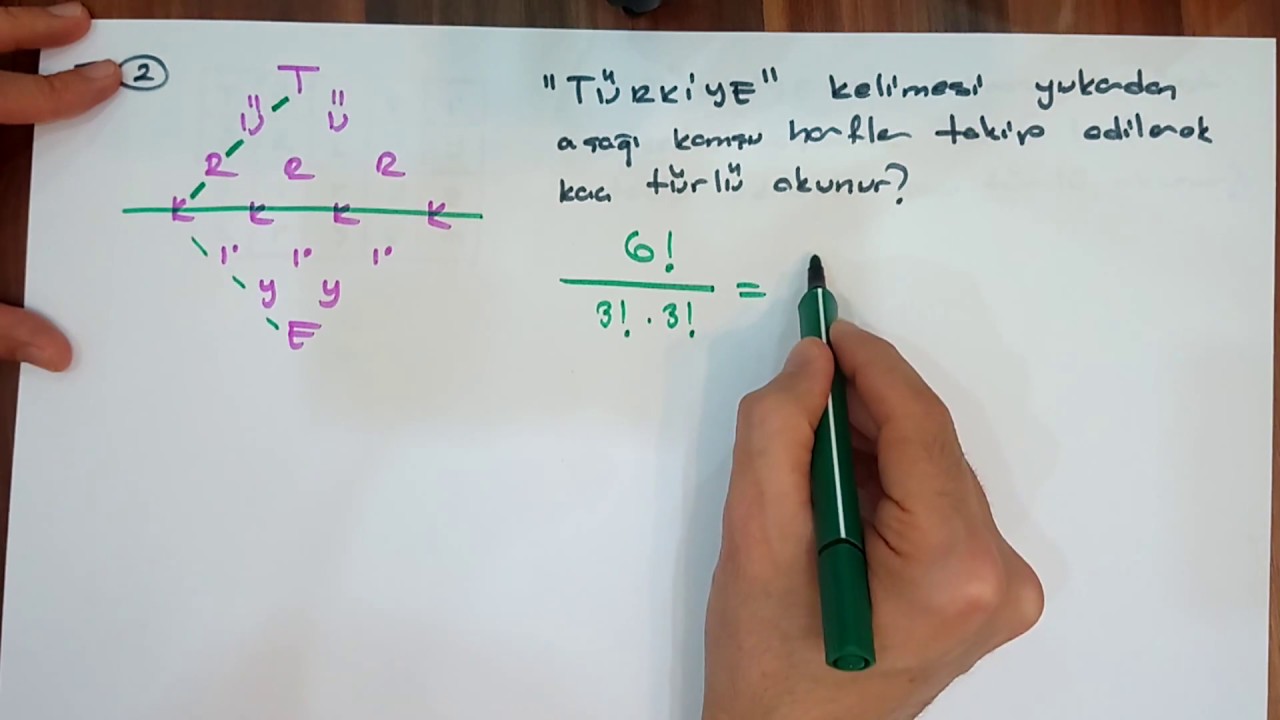 2
T
Ü Ü
R R R
K K K K
İ İ İ
Y Y
E
"TÜRKİYE" kelimesi yukarıdan
aşağı komşu harfler takip edilerek
kaç türlü okunur?
6!
3! . 3!
=